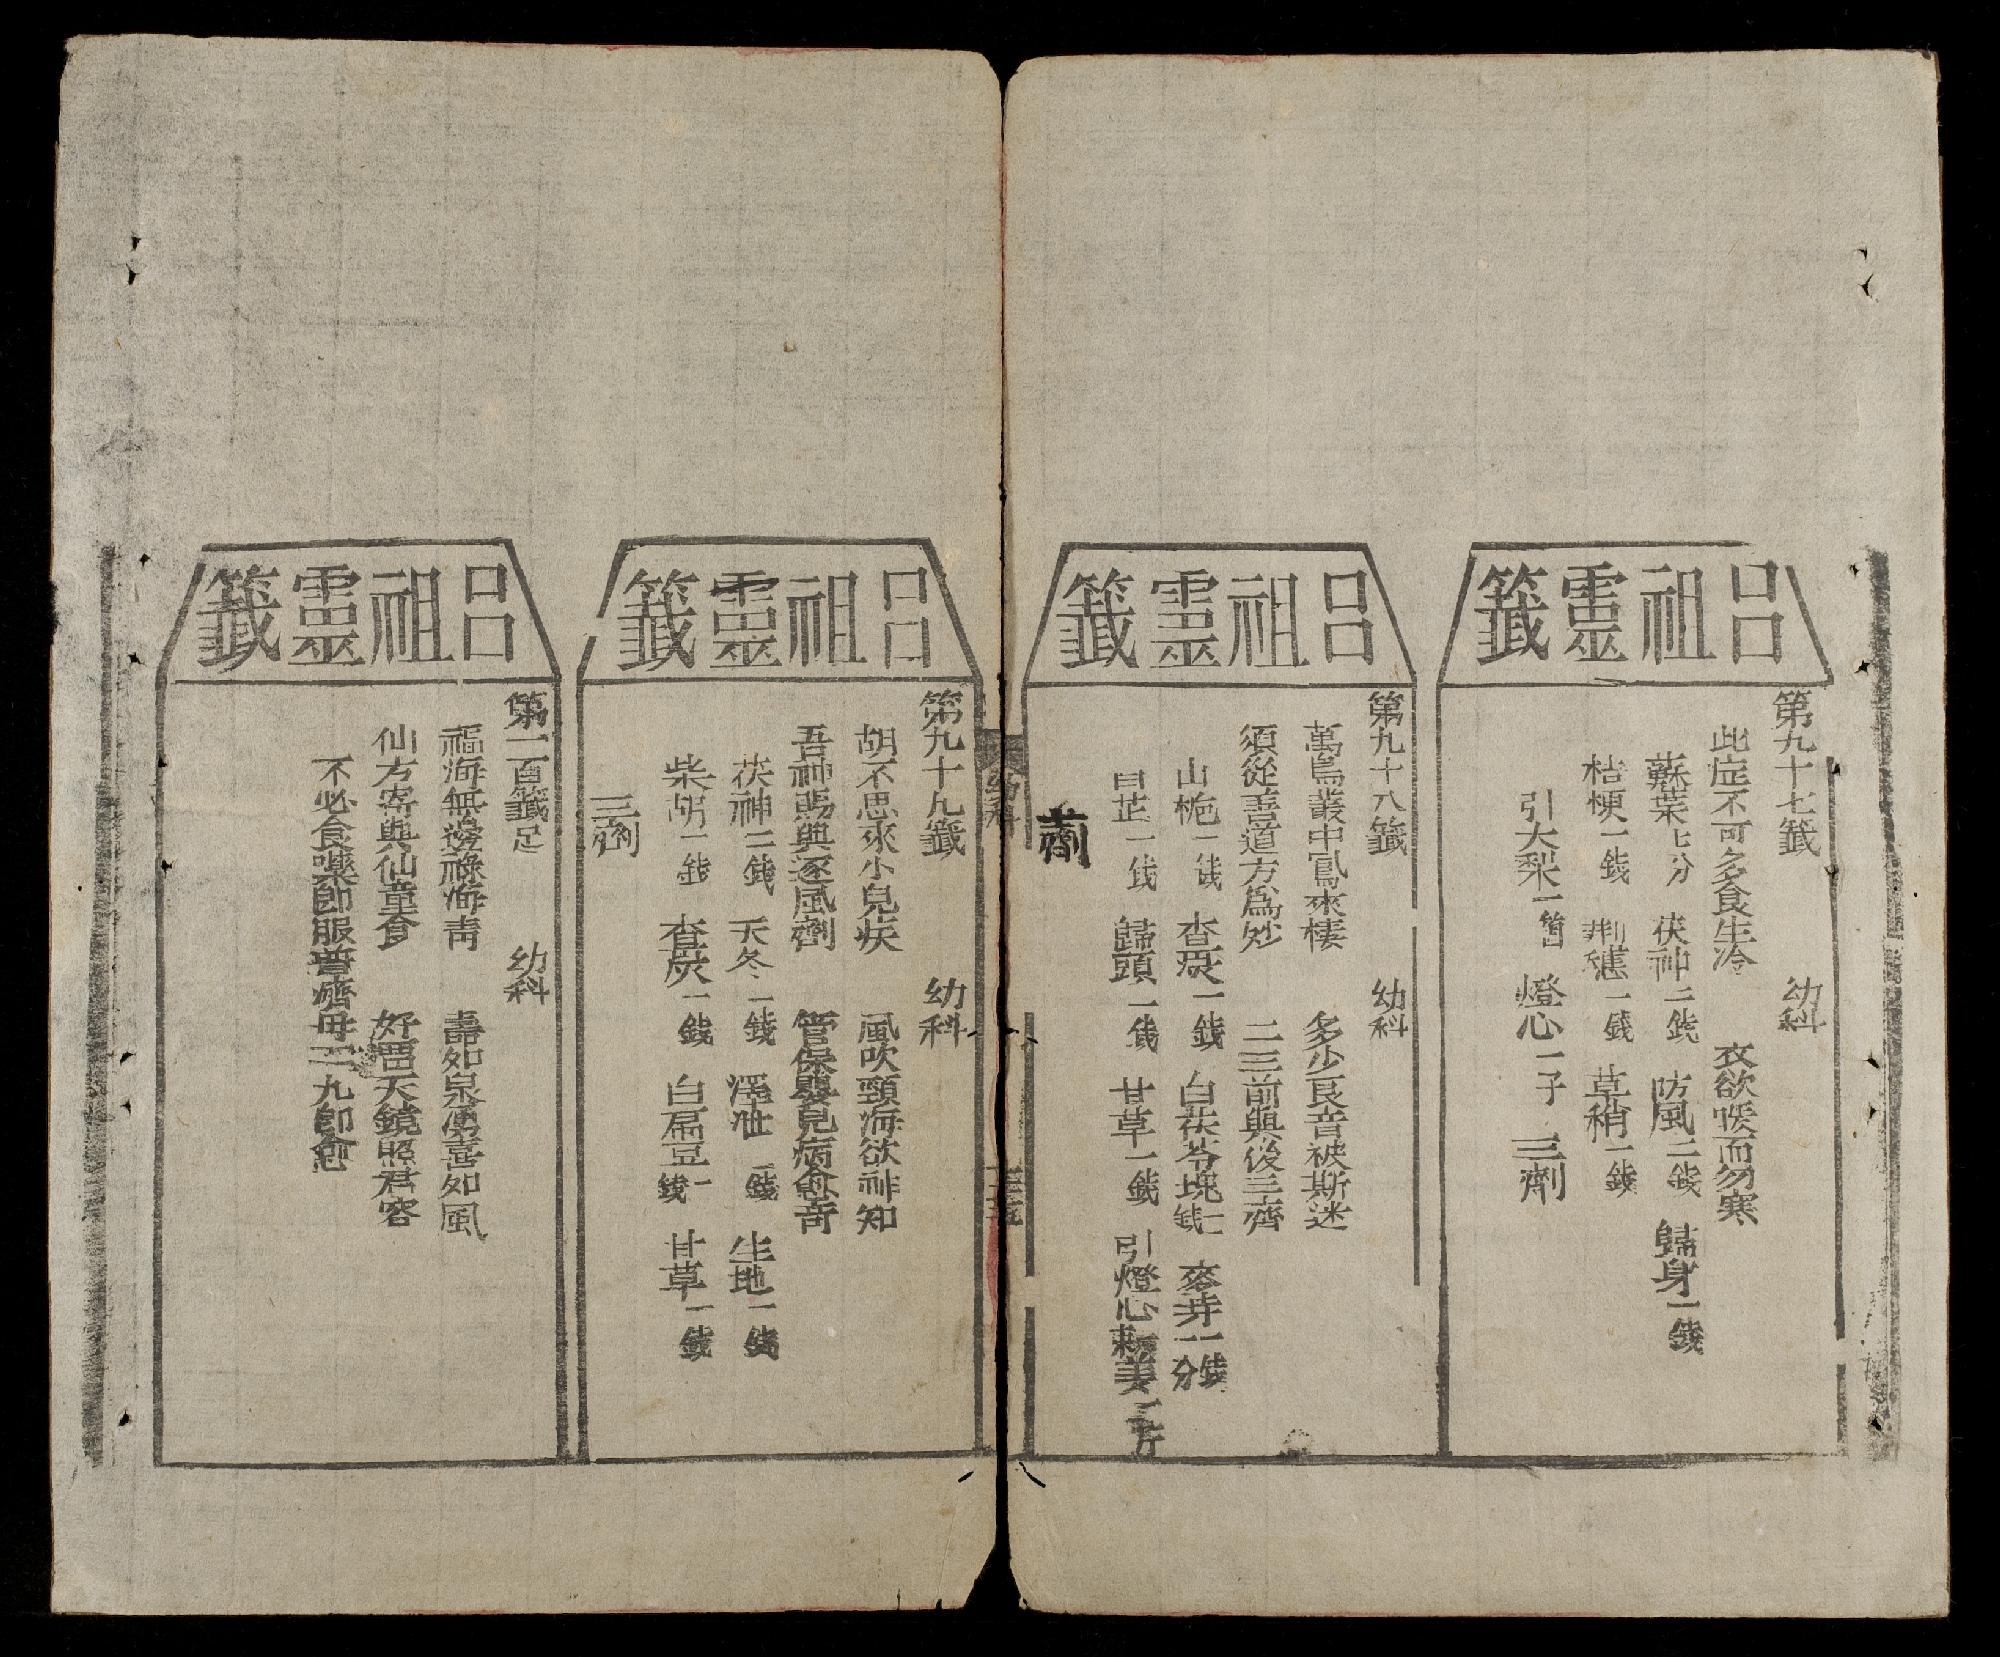 呂祖靈籤
第九十七籤 幼科
此症不可多食生冷 衣欲暖而勿寒
蘇葉七分 茯神二錢 防風二錢 歸身一錢
桔梗一錢 荆穗一錢 草稍一錢
引大梨一箇 燈心一子 三劑
呂祖靈籤
第九十八籤 幼科
萬鳥叢中鳳來棲 多少良音被斯迷
須從善道方爲妙 二三前與後三齊
山梔一錢 查炭一錢 白茯苓塊一錢 麥芽一錢分
白芷一錢 歸頭一錢 甘草一錢 引燈心 姜一斤
幼科
呂祖靈籤
第九十九籤 幼科
胡不思來小兒疾 風吹頸海欲神知
吾神賜與逐風劑 管保嬰兒病愈奇
茯神二錢 天冬一錢 澤泄一錢 生地一錢
柴胡一錢 查炭一錢 白扁豆一錢 甘草一錢
三劑
呂祖靈籤
第一百籤足 幼科
福海無邊祿海靑 壽如泉湧喜如風
仙方寄與仙童食 好芭天鏡照君容
不必食藥卽服普濟丹二九卽愈